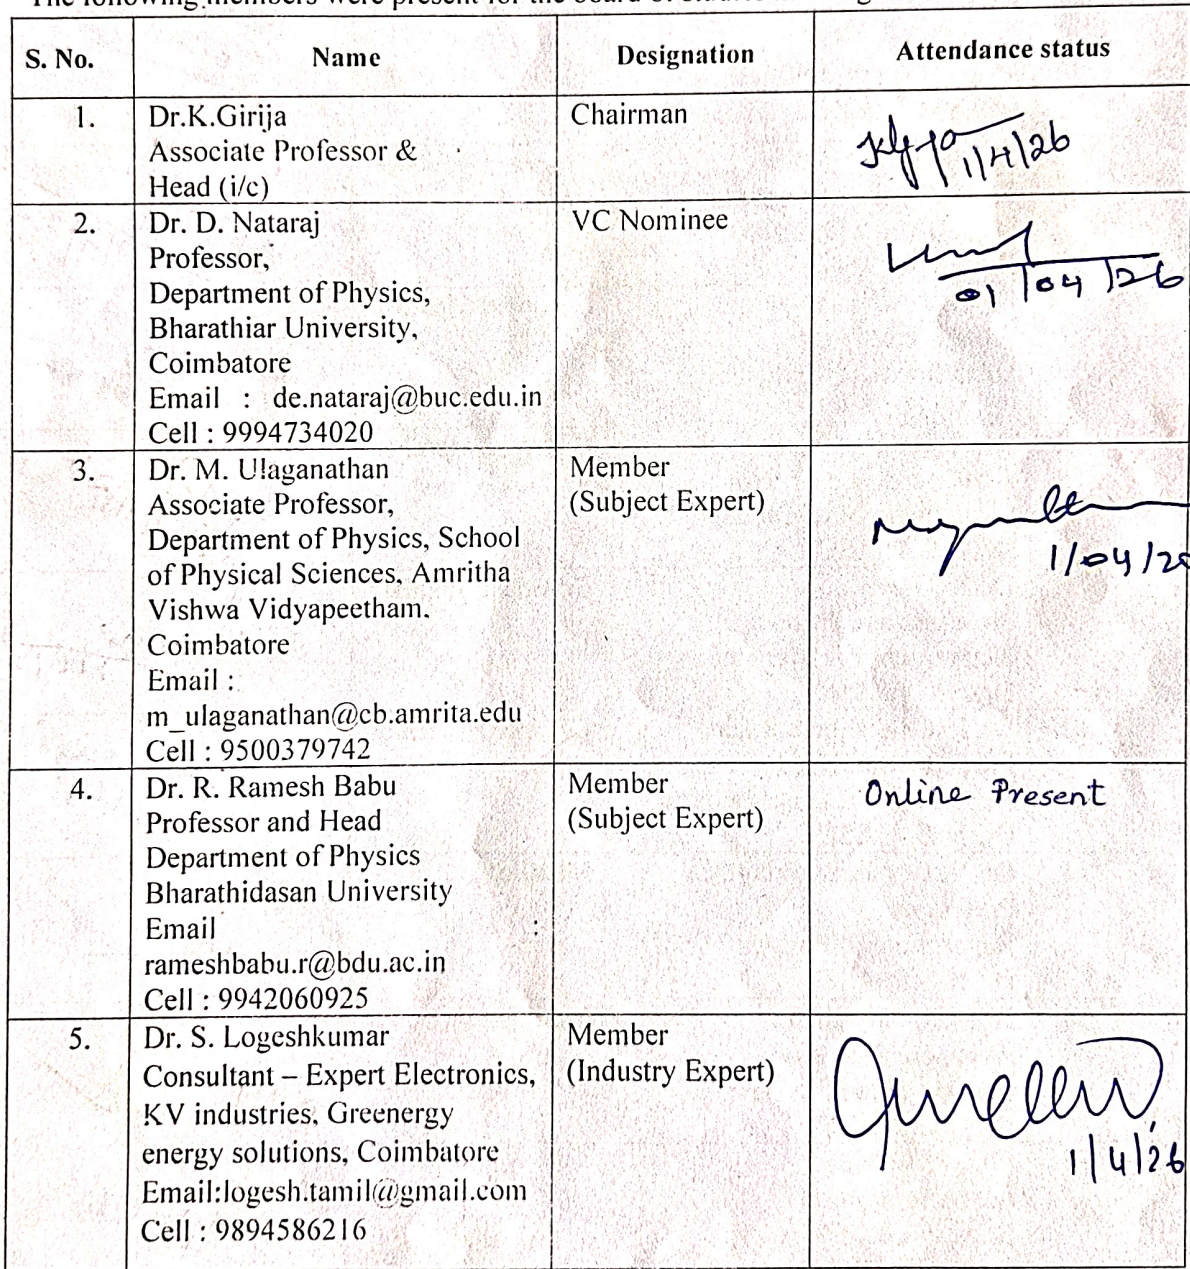 The following members were present for the board of studies meeting
S. No.
Name
Designation
Attendance status
1.
Dr.K.Girija
Associate Professor &
Head (i/c)
Chairman
1/4/26
2.
Dr. D. Nataraj
Professor,
Department of Physics,
Bharathiar University,
Coimbatore
Email : de.nataraj@buc.edu.in
Cell : 9994734020
VC Nominee
01/04/26
3.
Dr. M. Ulaganathan
Associate Professor,
Department of Physics, School
of Physical Sciences, Amritha
Vishwa Vidyapeetham.
Coimbatore
Email :
m_ulaganathan@cb.amrita.edu
Cell : 9500379742
Member
(Subject Expert)
1/04/2
4.
Dr. R. Ramesh Babu
Professor and Head
Department of Physics
Bharathidasan University
Email :
rameshbabu.r@bdu.ac.in
Cell : 9942060925
Member
(Subject Expert)
Online Present
5.
Dr. S. Logeshkumar
Consultant – Expert Electronics,
KV industries, Greenergy
energy solutions, Coimbatore
Email:logesh.tamil@gmail.com
Cell : 9894586216
Member
(Industry Expert)
1/4/26